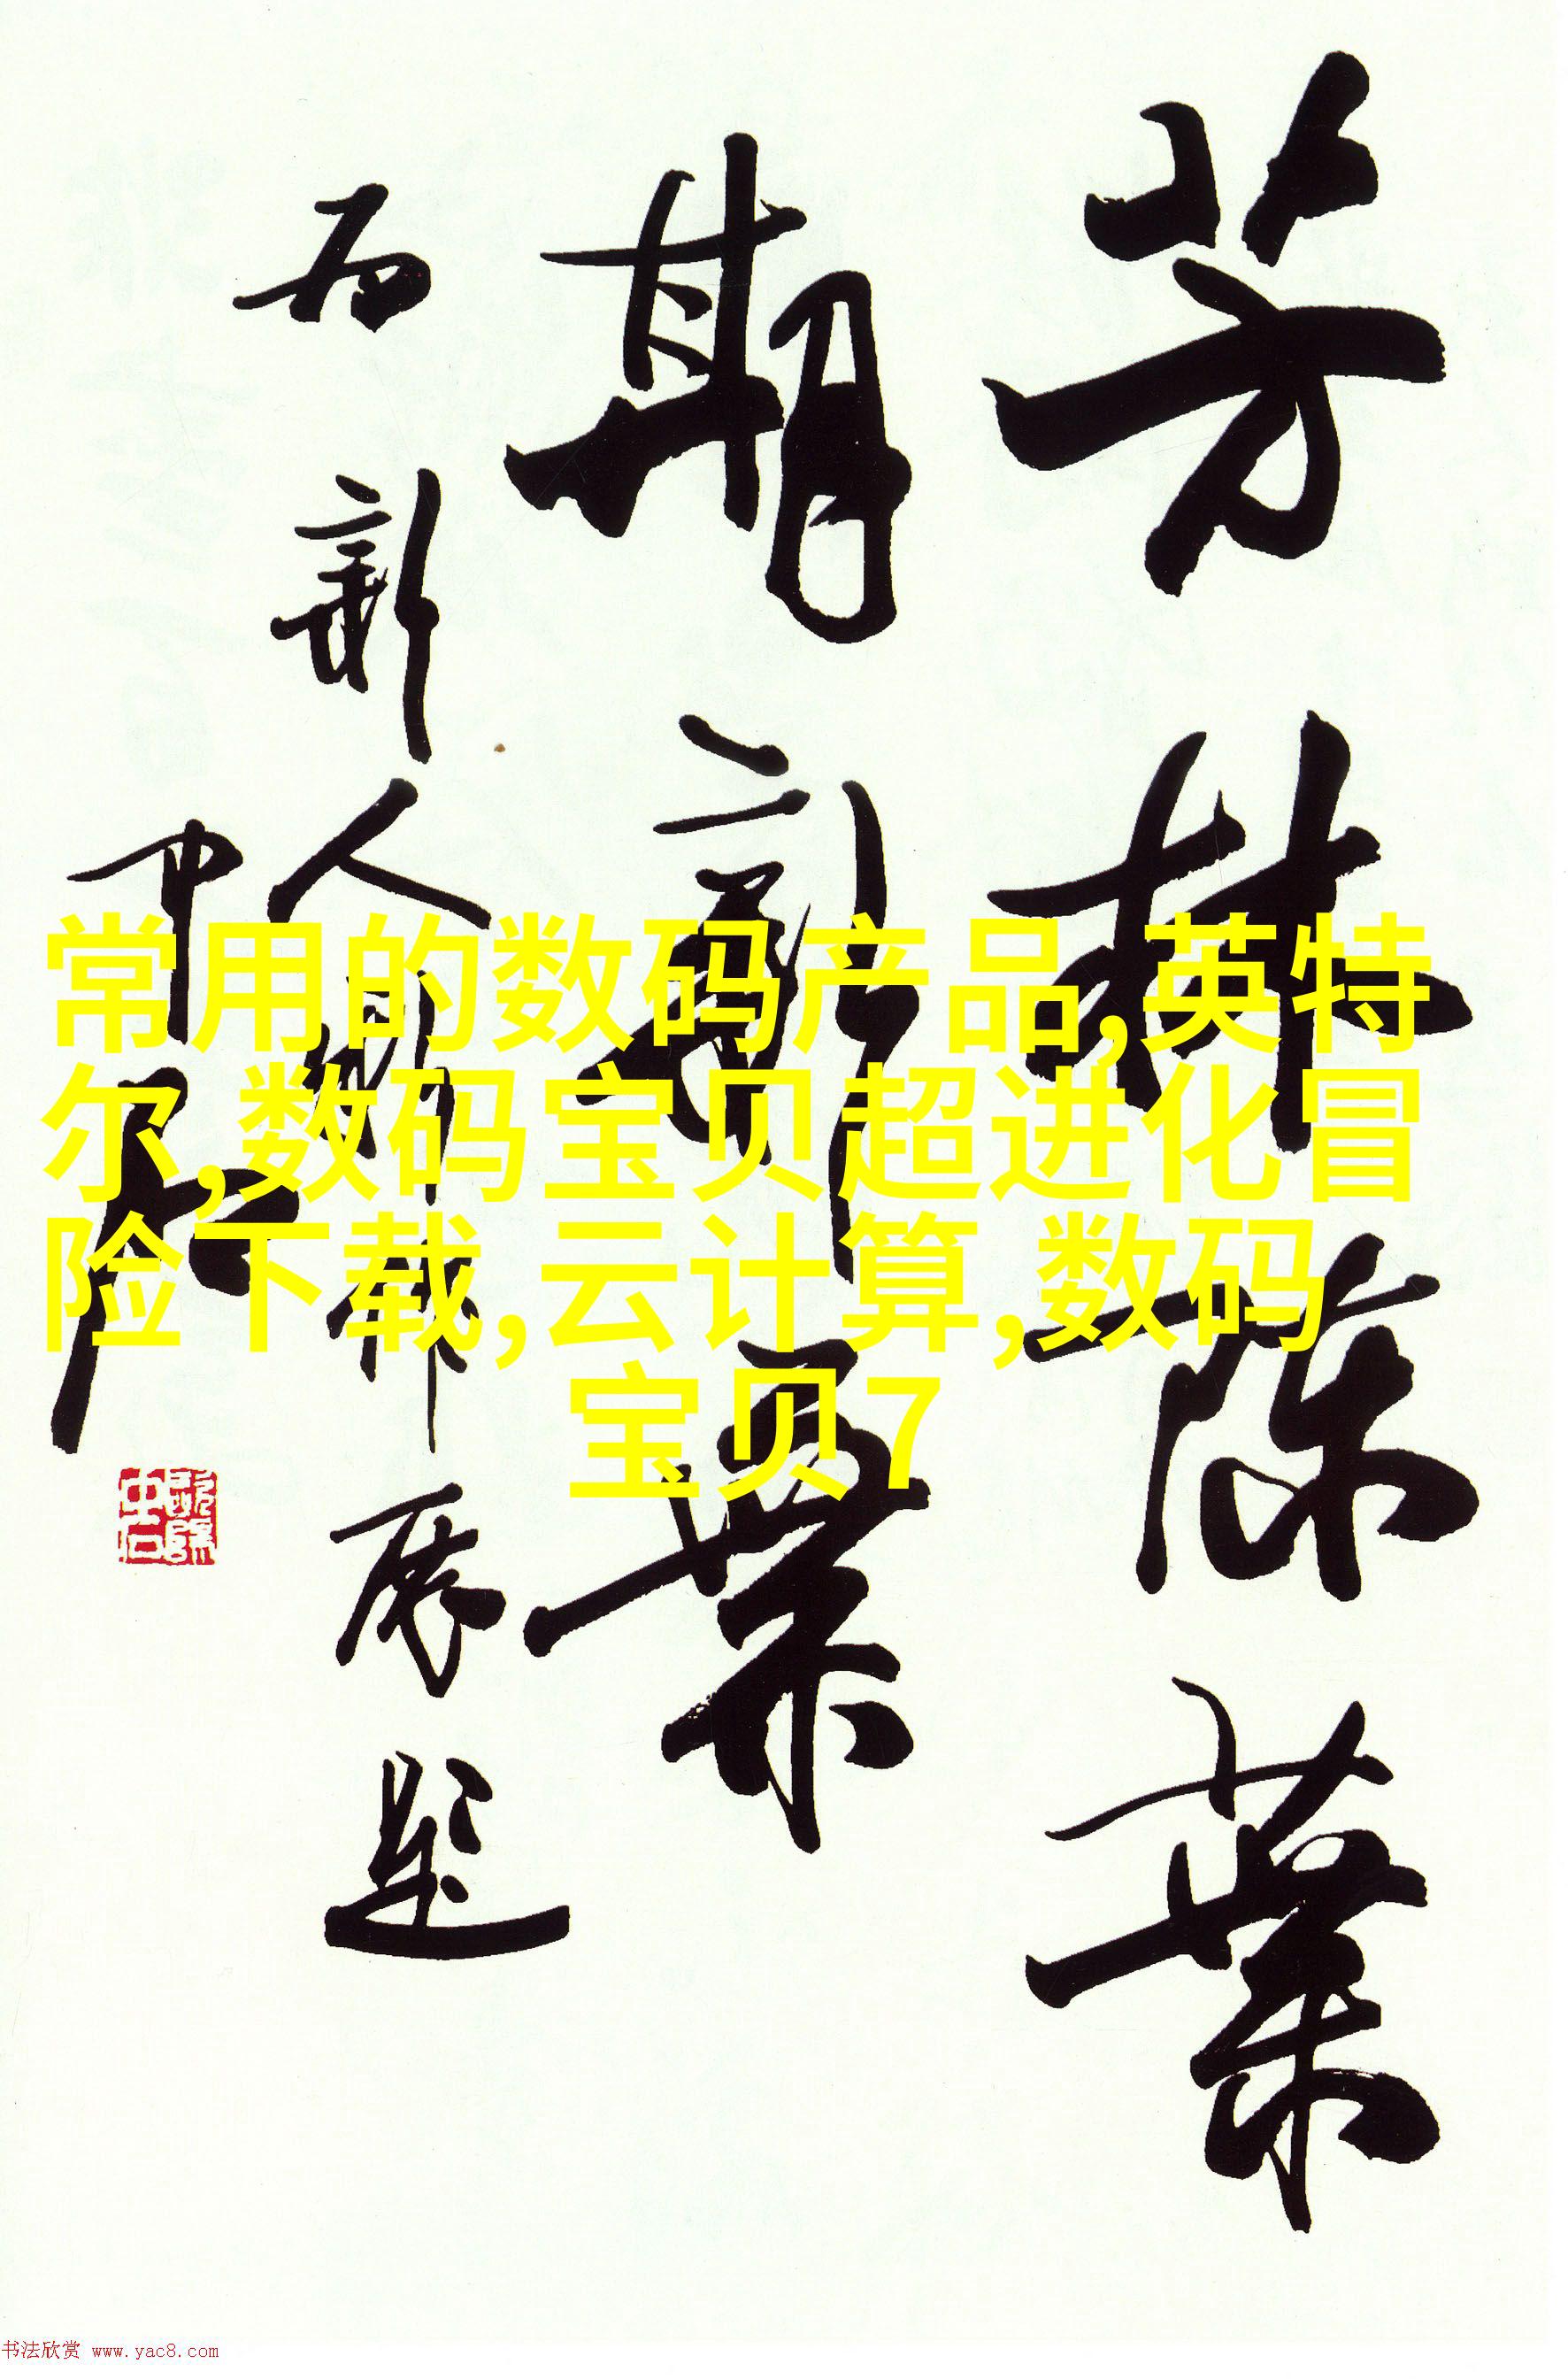 芳林陈葉
期新葉
为新人新作展题
中石
常用的数码产品,英特
尔,数码宝贝超进化冒
险下载,云计算,数码
宝贝7
书法欣赏 www.yac8.com